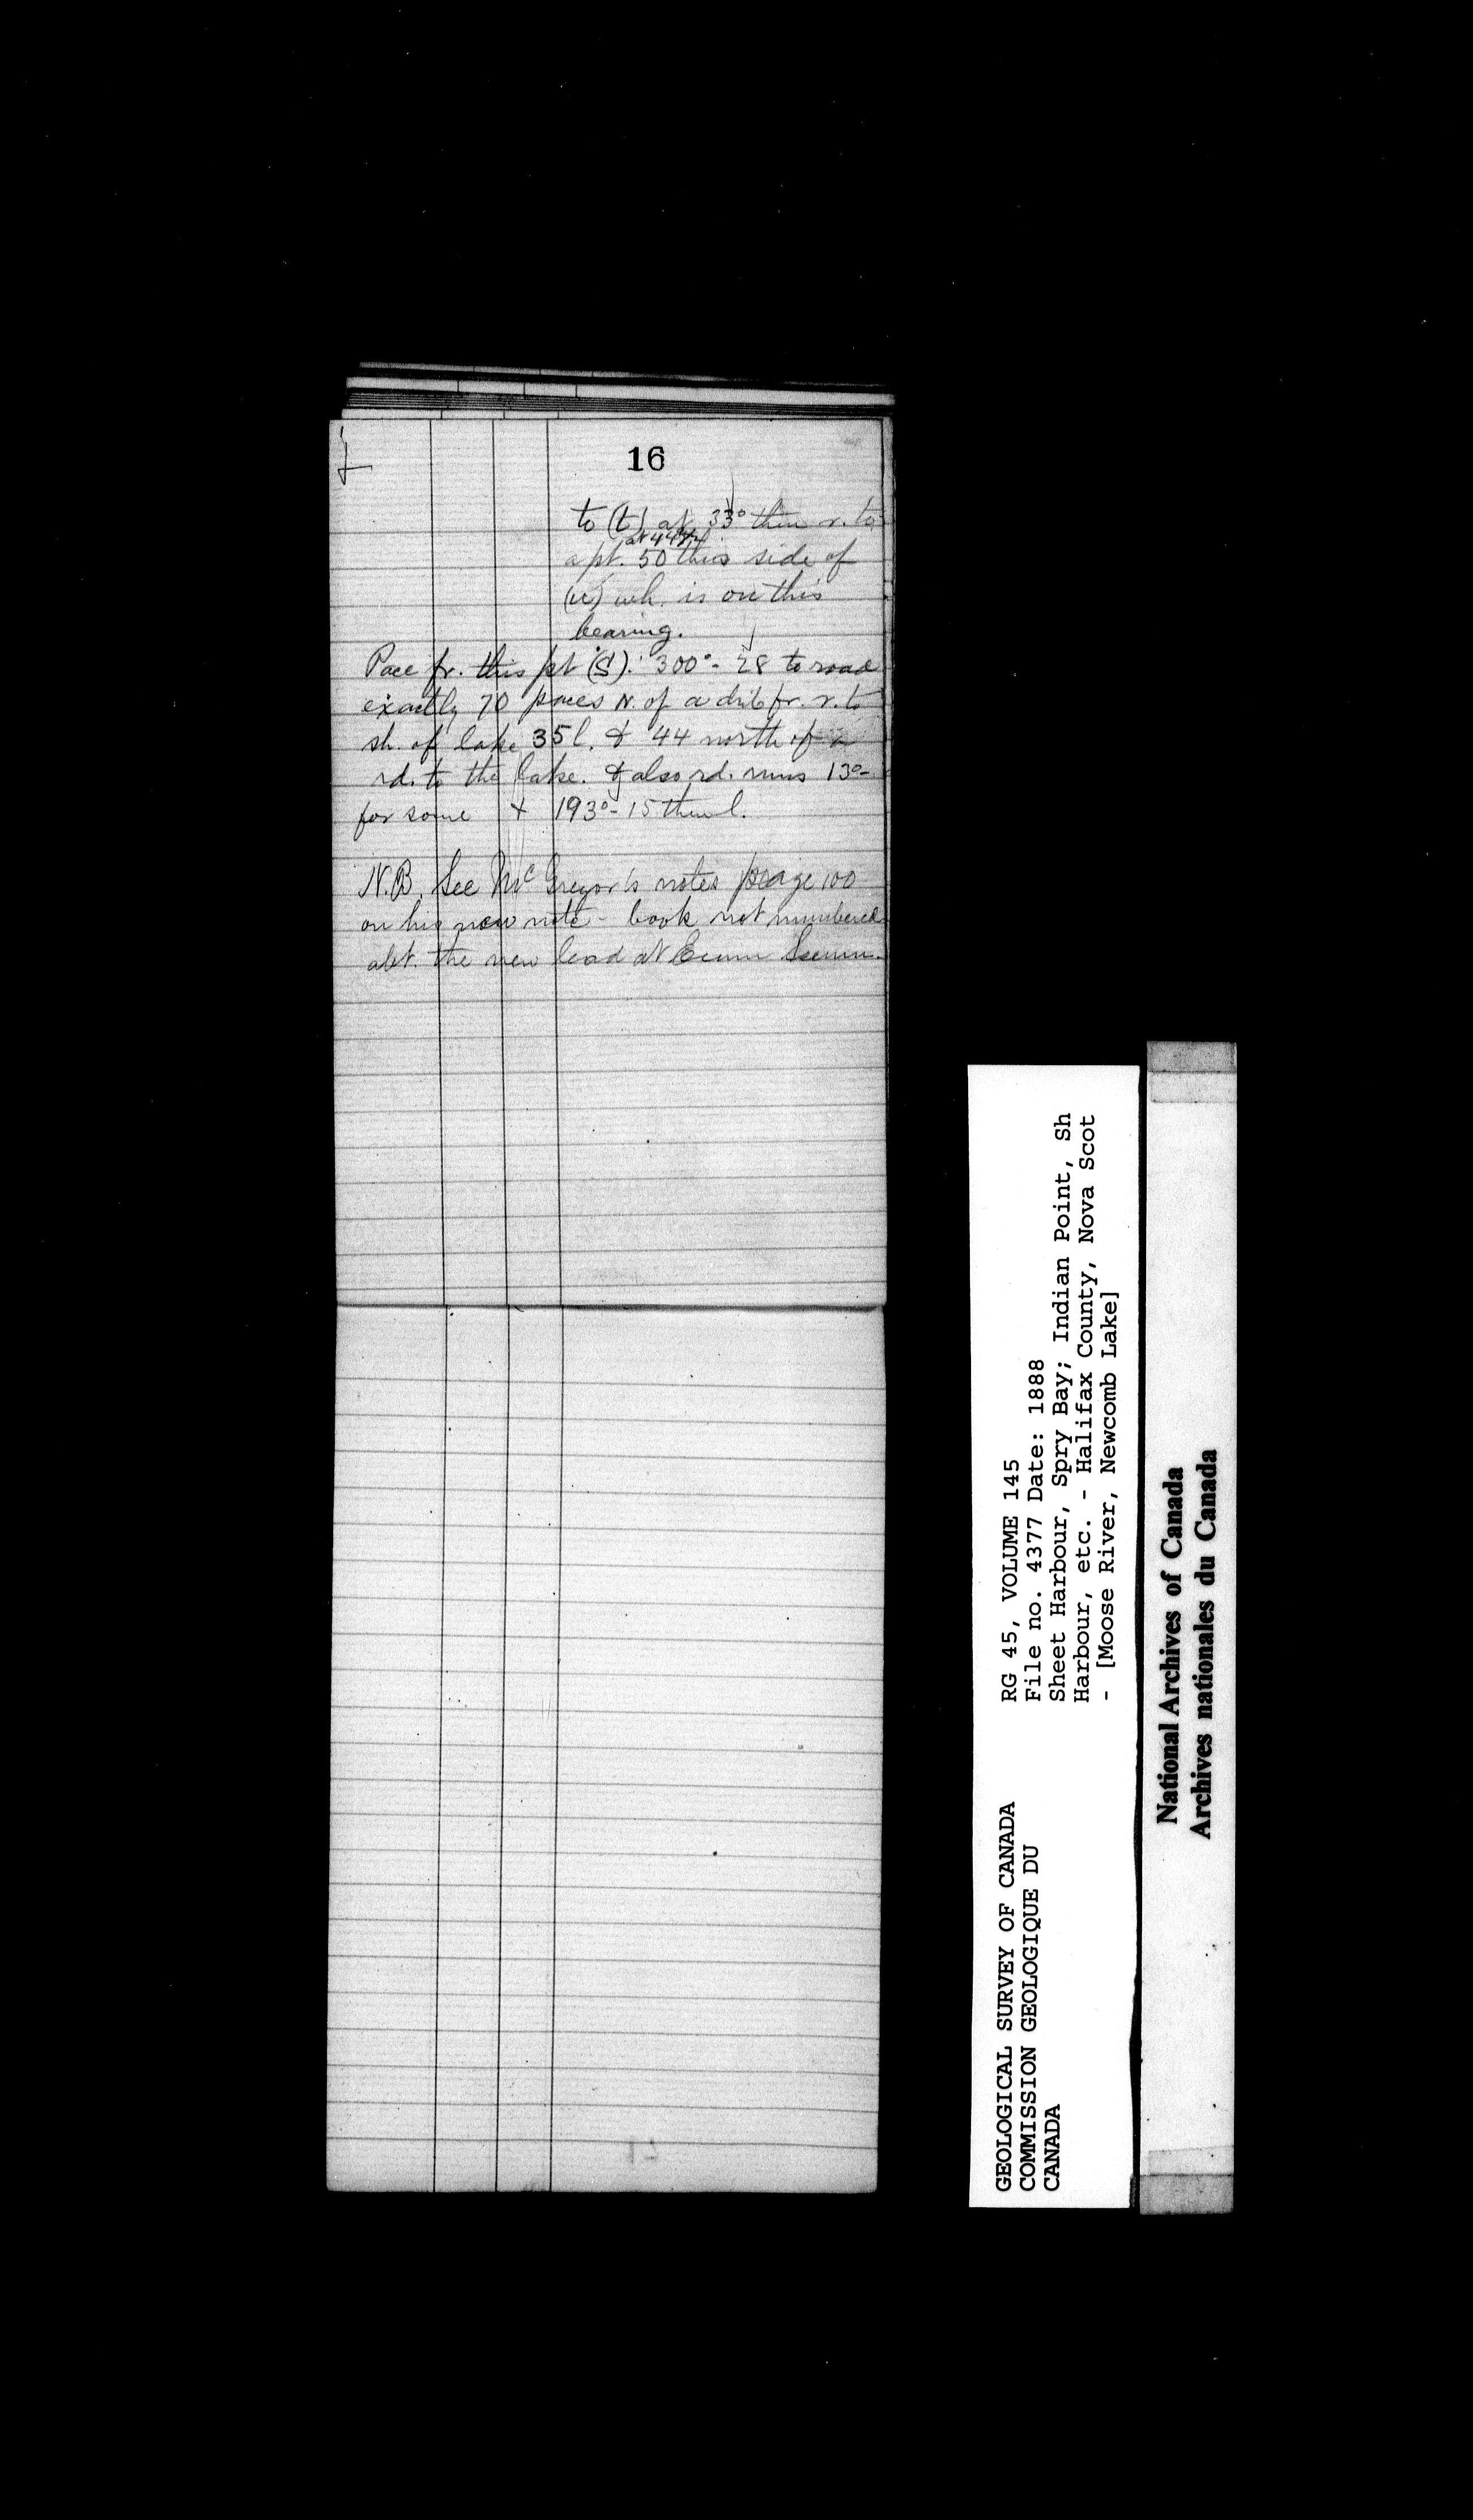 16
to (t) at 33° then r. to
at 44
a pt. 50 this side of
(u) wh. is on this
bearing.
Pace fr. this pt (S). 300° - 28 to road
exactly 70 paces N. of a dib fr. r. to
sh. of lake 35 l. & 44 north of a
rd. to the lake. & also rd. runs 13° -
for some & 193° - 15 then l.
N.B. See McGregor's notes page 100
on his new note - book not numbered
abt. the new lead at Ecum Secum.
RG 45, VOLUME 145
File no. 4377 Date: 1888
Sheet Harbour, Spry Bay; Indian Point, Sh
Harbour, etc. - Halifax County, Nova Scot
- [Moose River, Newcomb Lake]
GEOLOGICAL SURVEY OF CANADA
COMMISSION GEOLOGIQUE DU
CANADA
National Archives of Canada
Archives nationales du Canada